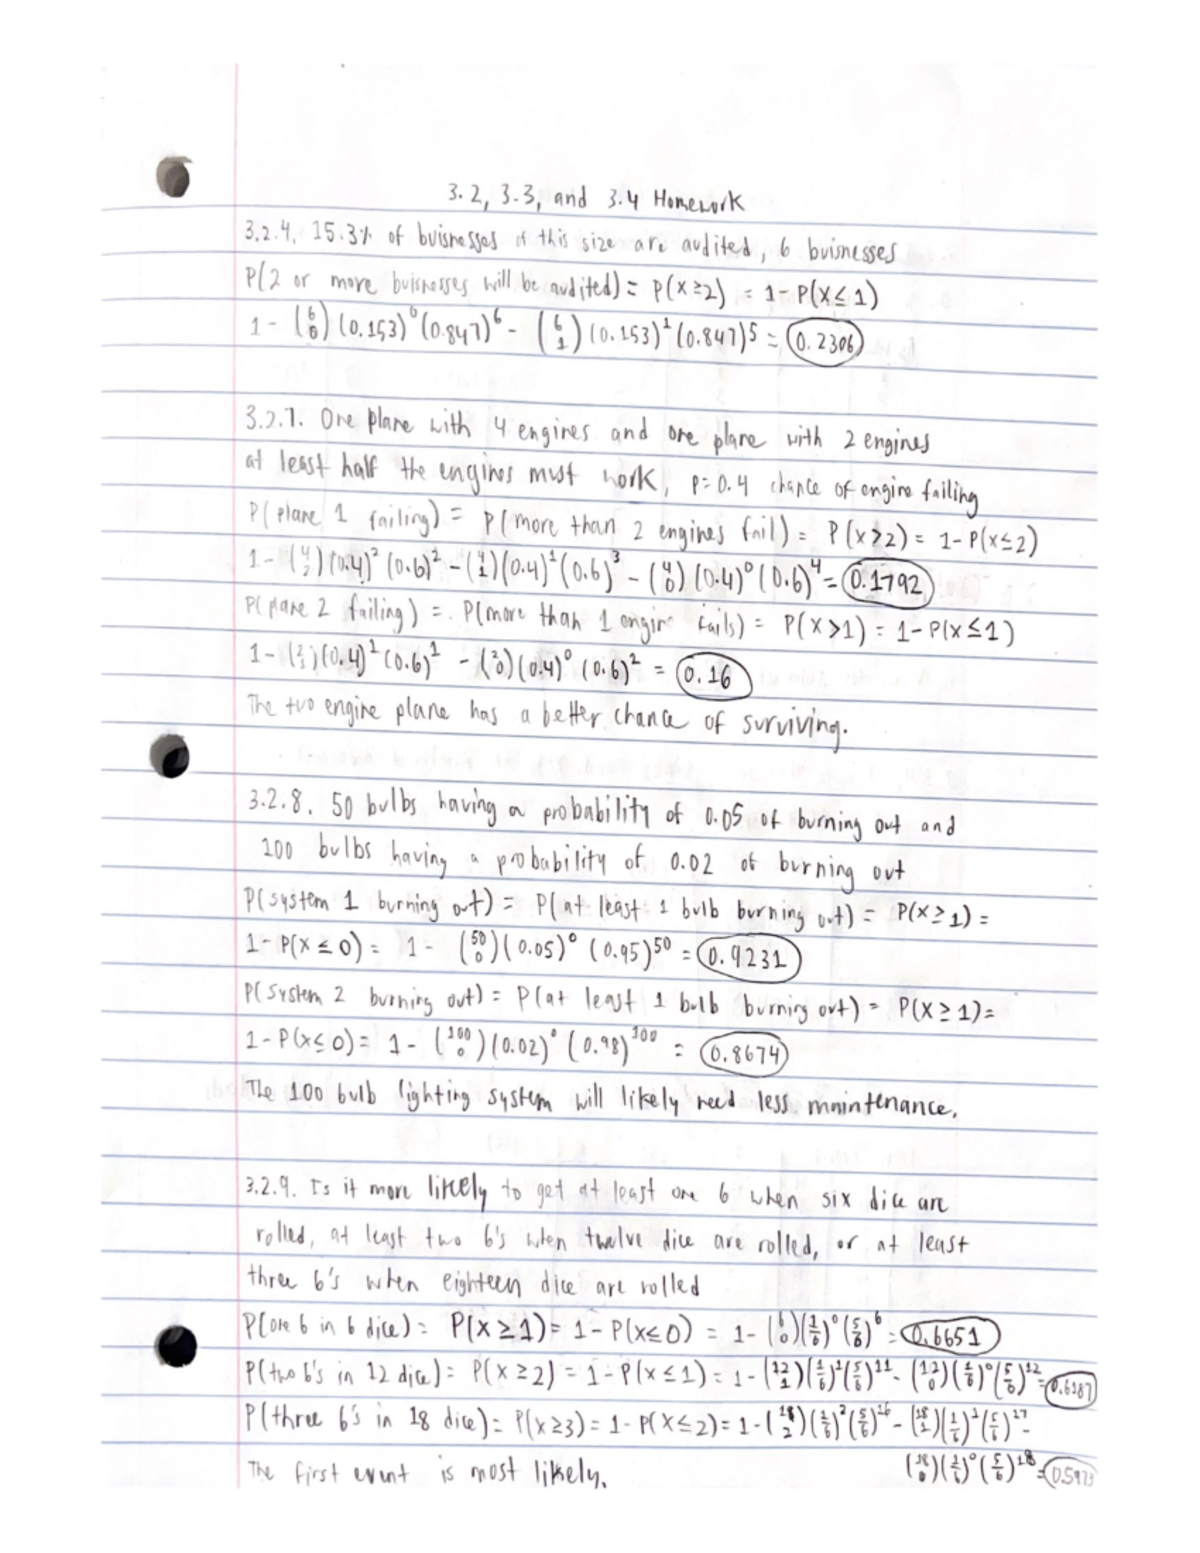 3.2, 3.3, and 3.4 Homework
3.2.4. 15.3% of buisnesses of this size are audited, 6 buisnesses
P(2 or more buisnesses will be audited) = P(x≥2) = 1-P(X≤1)
1 - (6 0)(0.153)^0(0.847)^6 - (6 1)(0.153)^1(0.847)^5 = 0.2306
3.2.7. One plane with 4 engines and one plane with 2 engines
at least half the engines must work, p=0.4 chance of engine failing
P(plane 1 failing) = P(more than 2 engines fail) = P(x>2) = 1-P(x≤2)
1-(4 2)(0.4)^2(0.6)^2-(4 1)(0.4)^1(0.6)^3-(4 0)(0.4)^0(0.6)^4=0.1792
P(plane 2 failing) = P(more than 1 engine fails) = P(x>1) = 1-P(x≤1)
1-(2 1)(0.4)^1(0.6)^1 - (2 0)(0.4)^0(0.6)^2 = 0.16
The two engine plane has a better chance of surviving.
3.2.8. 50 bulbs having a probability of 0.05 of burning out and
100 bulbs having a probability of 0.02 of burning out
P(system 1 burning out) = P(at least 1 bulb burning out) = P(x≥1) =
1-P(x≤0) = 1 - (50 0)(0.05)^0(0.95)^50 = 0.9231
P(system 2 burning out) = P(at least 1 bulb burning out) = P(x≥1)=
1-P(x≤0) = 1-(100 0)(0.02)^0(0.98)^100 = 0.8674
The 100 bulb lighting system will likely need less maintenance.
3.2.9. Is it more likely to get at least one 6 when six dice are
rolled, at least two 6's when twelve dice are rolled, or at least
three 6's when eighteen dice are rolled
P(one 6 in 6 dice) = P(x≥1) = 1-P(x≤0) = 1-(6 0)(1/6)^0(5/6)^6=0.6651
P(two 6's in 12 dice) = P(x≥2) = 1-P(x≤1) = 1-(12 1)(1/6)^1(5/6)^11-(12 0)(1/6)^0(5/6)^12=0.6187
P(three 6's in 18 dice) = P(x≥3) = 1-P(x≤2) = 1-(18 2)(1/6)^2(5/6)^16-(18 1)(1/6)^1(5/6)^17-
(18 0)(1/6)^0(5/6)^18=0.5973
The first event is most likely.